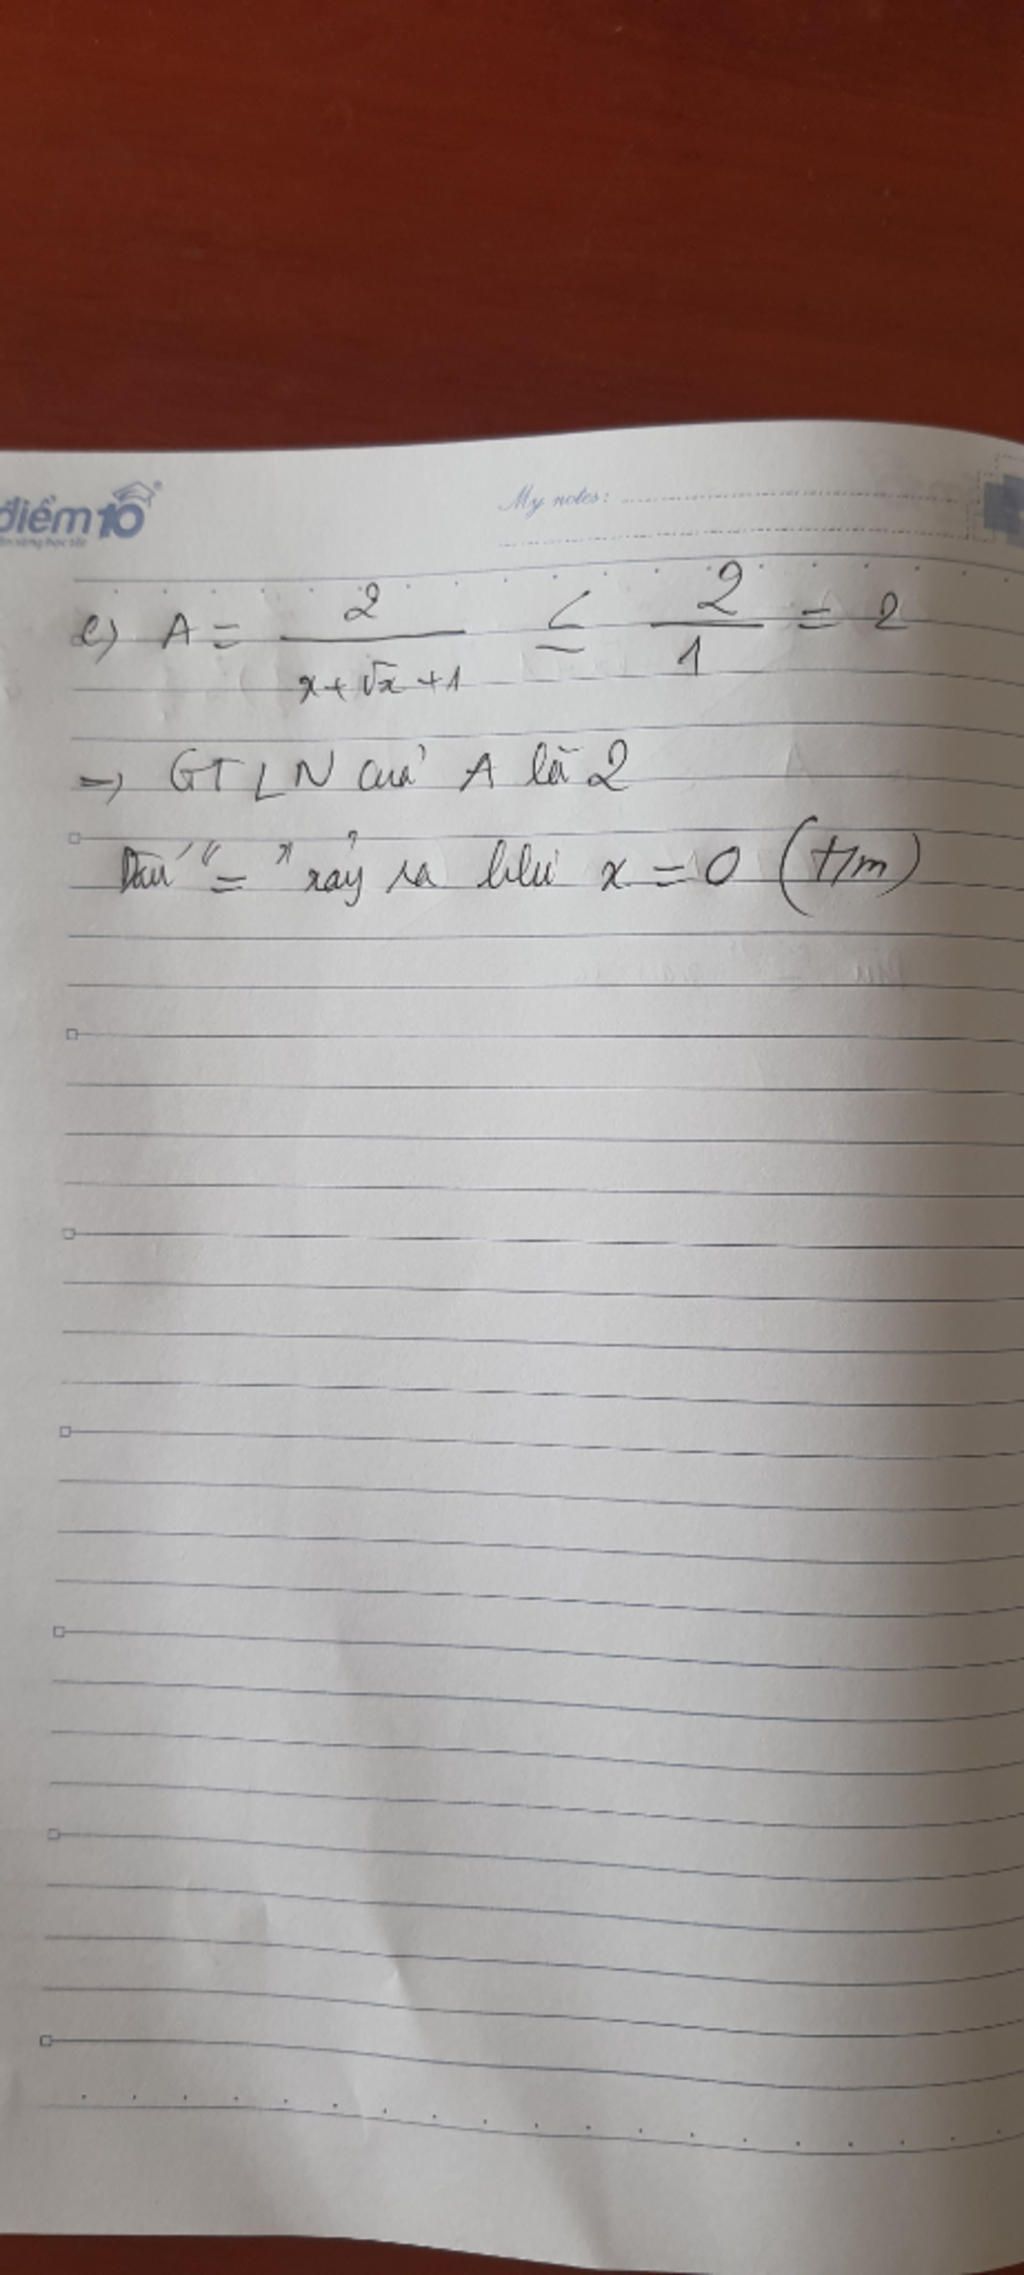 điểm10
My notes:
e) A = 2/(x+√x+1) ≤ 2/1 = 2
=> GTLN của A là 2
Dấu "=" xảy ra khi x = 0 (t/m)